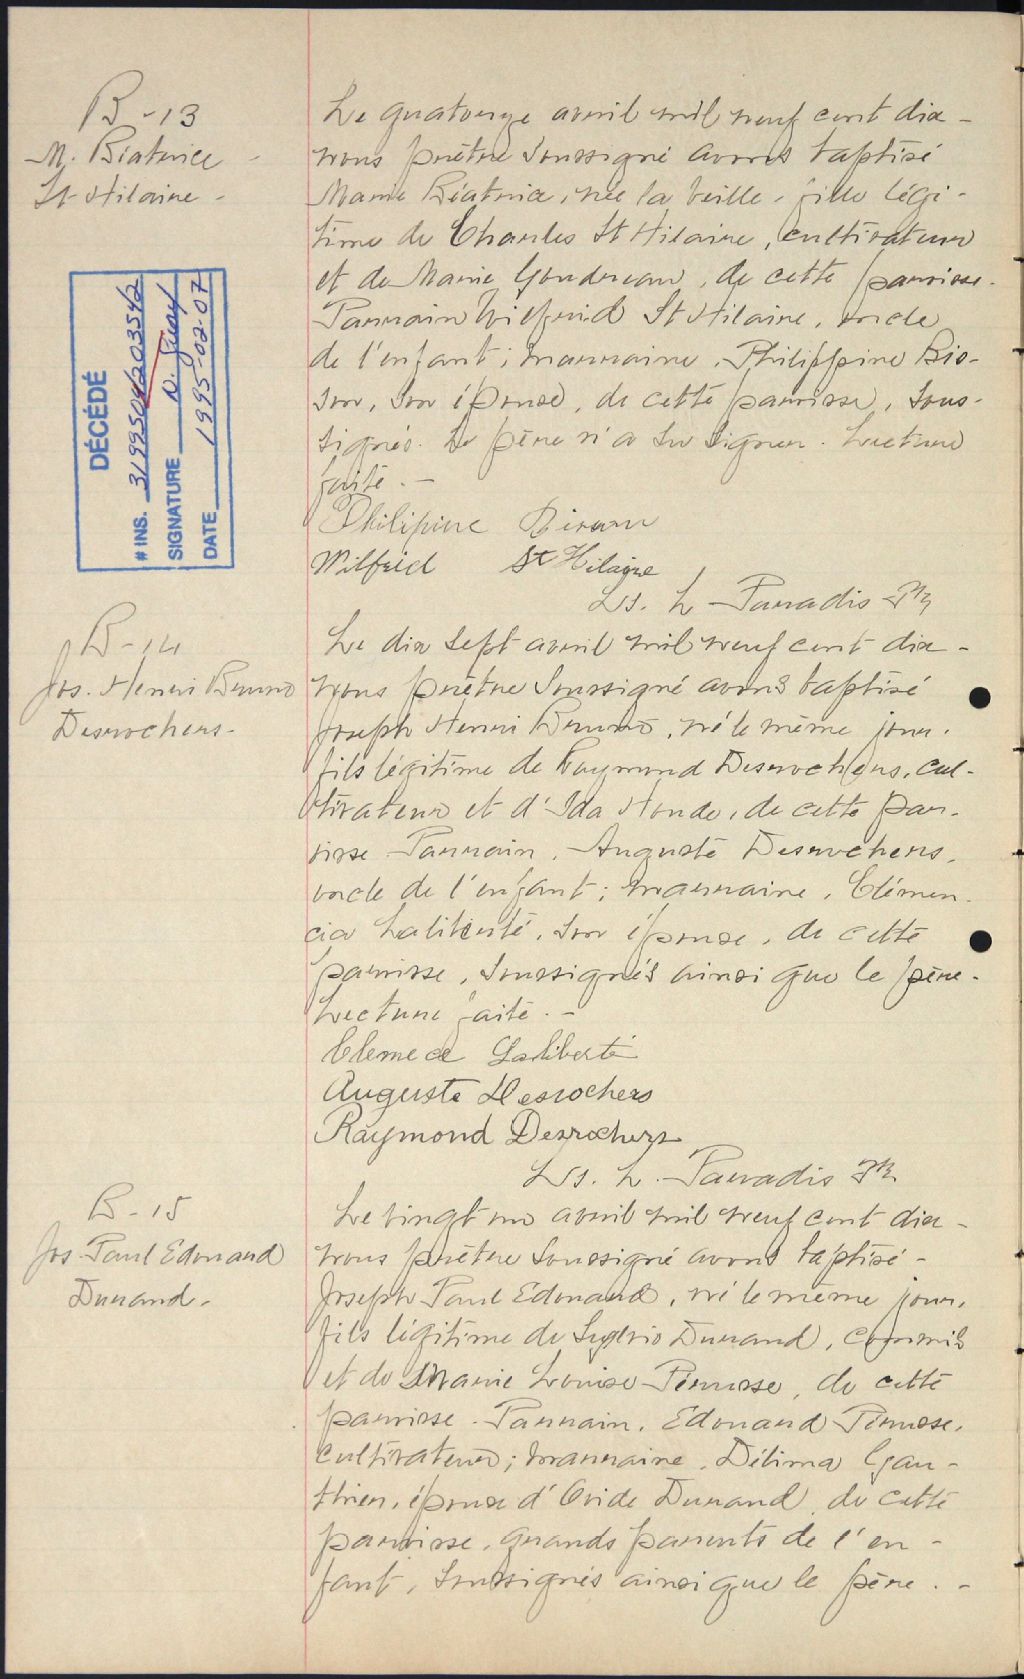 B-13
M. Béatrice
St Hilaire -
DÉCÉDÉ
# INS. 3199504203542
SIGNATURE N. Guay
DATE 1995-02-07
Le quatorze avril mil neuf cent dix -
nous prêtre soussigné avons baptisé
Marie Béatrice, née la veille, fille légi-
time de Charles St Hilaire, cultivateur
et de Marie Goudreau, de cette paroisse.
Parrain Wilfrid St Hilaire, oncle
de l'enfant; marraine, Philippine Bis-
son, son épouse, de cette paroisse, sous-
signés. Le père n'a su signer. Lecture
faite. -
Philipine
Wilfrid St Hilaire
Ls. L. Paradis Ptr
B-14
Jos. Henri Bruno
Desrochers -
Le dix sept avril mil neuf cent dix -
nous prêtre soussigné avons baptisé
Joseph Henri Bruno, né le même jour,
fils légitime de Raymond Desrochers, cul-
tivateur et d'Ida Houde, de cette par-
oisse. Parrain, Auguste Desrochers,
oncle de l'enfant; marraine, Clémen-
cia Laliberté, son épouse, de cette
paroisse, soussignés ainsi que le père.
Lecture faite. -
Clemece Laliberté
Auguste Desrochers
Raymond Desrochers
Ls. L. Paradis Ptr
B-15
Jos. Paul Edouard
Durand -
Le vingt un avril mil neuf cent dix -
nous prêtre soussigné avons baptisé -
Joseph Paul Edouard, né le même jour,
fils légitime de Sylvio Durand, commis
et de Marie Louise Pérusse, de cette
paroisse. Parrain, Edouard Pérusse,
cultivateur; marraine, Délima Gau-
thier, épouse d'Ovide Durand, de cette
paroisse, grands parents de l'en-
fant, soussignés ainsi que le père. -